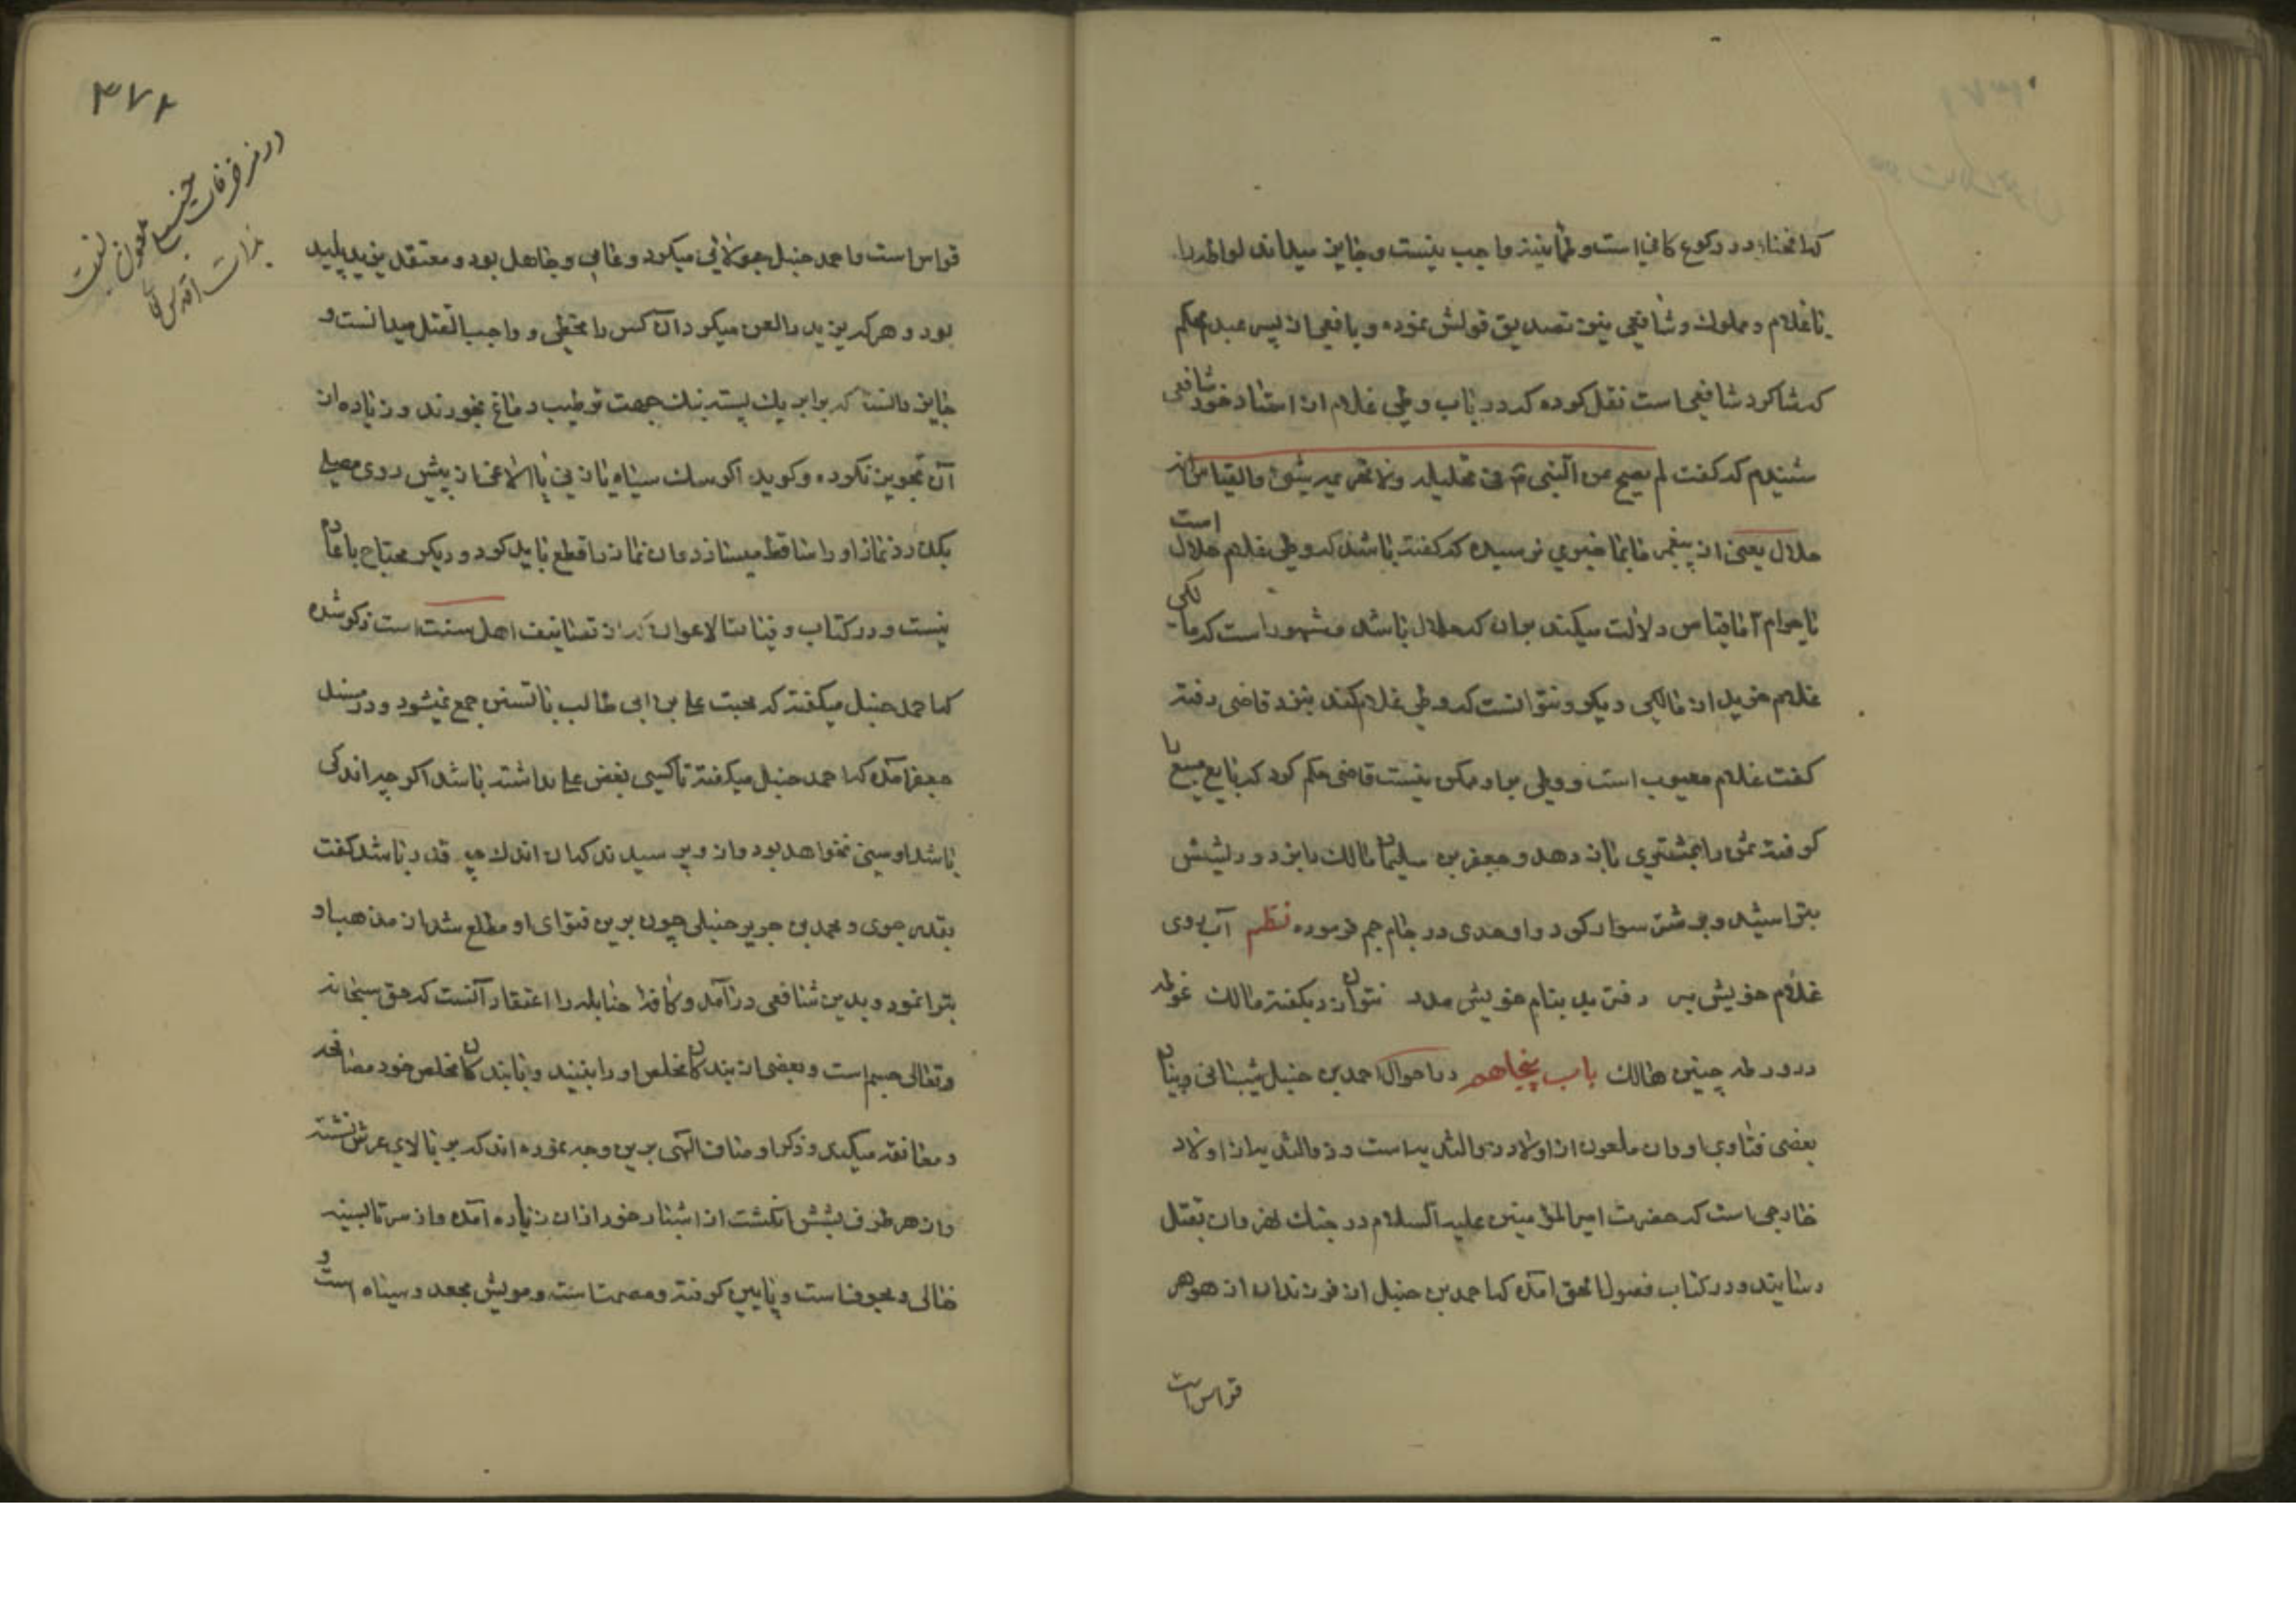 که انحناء در رکوع کافی است و طمانینه واجب نیست و جایز میداند لواطه را
با غلام و مملوک و شافعی نیز تصدیق قولش نموده و یافعی از پسر عبد محکم
که شاکرد شافعی است نقل کرده که در باب وطی غلام از استاد خود شافعی
شنیدم که کفت لم یصح عن النبی فی تحلیله ولا تحریمه شئ والقیاس انه
حلال یعنی از پیغمبر خبری نرسیده که کفته باشد که وطی غلام حلال است
یا حرام اما قیاس دلالت میکند بران که حلال باشد و مشهور است که مالکی
غلام خرید از مالکی دیکر و نتوانست که وطی غلام کند بنزد قاضی رفته
کفت غلام معیوب است و وطی با و ممکن نیست قاضی حکم کرد که بایع مبیع را
کرفته ثمن را بمشتری باز دهد و جعفر بن سلیمان مالک را بزد و ریشش
بتراشید و بر شتر سوار کرد و اوحدی در جام جم فرموده نظم آب روی
غلام خویش مبر رفتن بد بنام خویش مدد نتوان زد بکفته مالک غوطه
در ورطه چنین هالک باب پنجاهم در احوال احمد بن حنبل شیبانی و بیان
بعضی فتاوی او وان ملعون از اولاد ذو الثدیه است و ذو الثدیه از اولاد
خارجی است که حضرت امیر المؤمنین علیه السلام در جنک نهروان بقتل
رسانیند و در کتاب فصول الحق امده که احمد بن حنبل از فرزندان از هوهر
قواس است
٣٧٢
در مزخرفات حنبلیها ملعون نسبت
بذات اقدس
قواس است و احمد حنبل جولائی میکرد و عامی و جاهل بود و معتقد یزید پلید
بود و هر که یزید را لعن میکرد آن کس را مخطی و واجب القتل میدانست و
جایز دانسته که برابر یک پسته بنک جهت ترطیب دماغ بخورند و زیاده از
آن تجویز نکرده و کوید اکر سک سیاه یا زنی یا الاغی از پیش روی مصلی
بکذرد نماز او را ساقط میسازد و ان نماز را قطع باید کرد و دیکر محتاج باعاده
نیست و در کتاب وفیات الاعیان که از تصانیف اهل سنت است ذکر شده
که احمد حنبل میکفته که محبت علی بن ابی طالب با تسنن جمع نمیشود و در مسند
جعفر امده که احمد حنبل میکفته تا کسی بغض علی نداشته باشد اکر چه اندکی
باشد او سنی نخواهد بود و از و پرسیدند که ان اندک چه قدر باشد کفت
بقدر جوی و محمد بن جریر حنبلی چون برین فتوای او مطلع شد از مذهب او
تبرا نمود و بدین شافعی در آمد و کافه حنابله را اعتقاد آنست که حق سبحانه
و تعالی جسم است و بعضی از بندکان مخلص او را ببینند و با بندکان مخلص خود مصافحه
و معانقه میکند و ذکر اوصاف الهی برین وجه نموده اند که بر بالای عرش نشسته
و از هر طرف شش انکشت از اشبار خود ازان زیاده آمده و از سر تا بسینه
خالی و مجوف است و پایین کرفته و مصمت است و مویش مجعد و سیاه است و